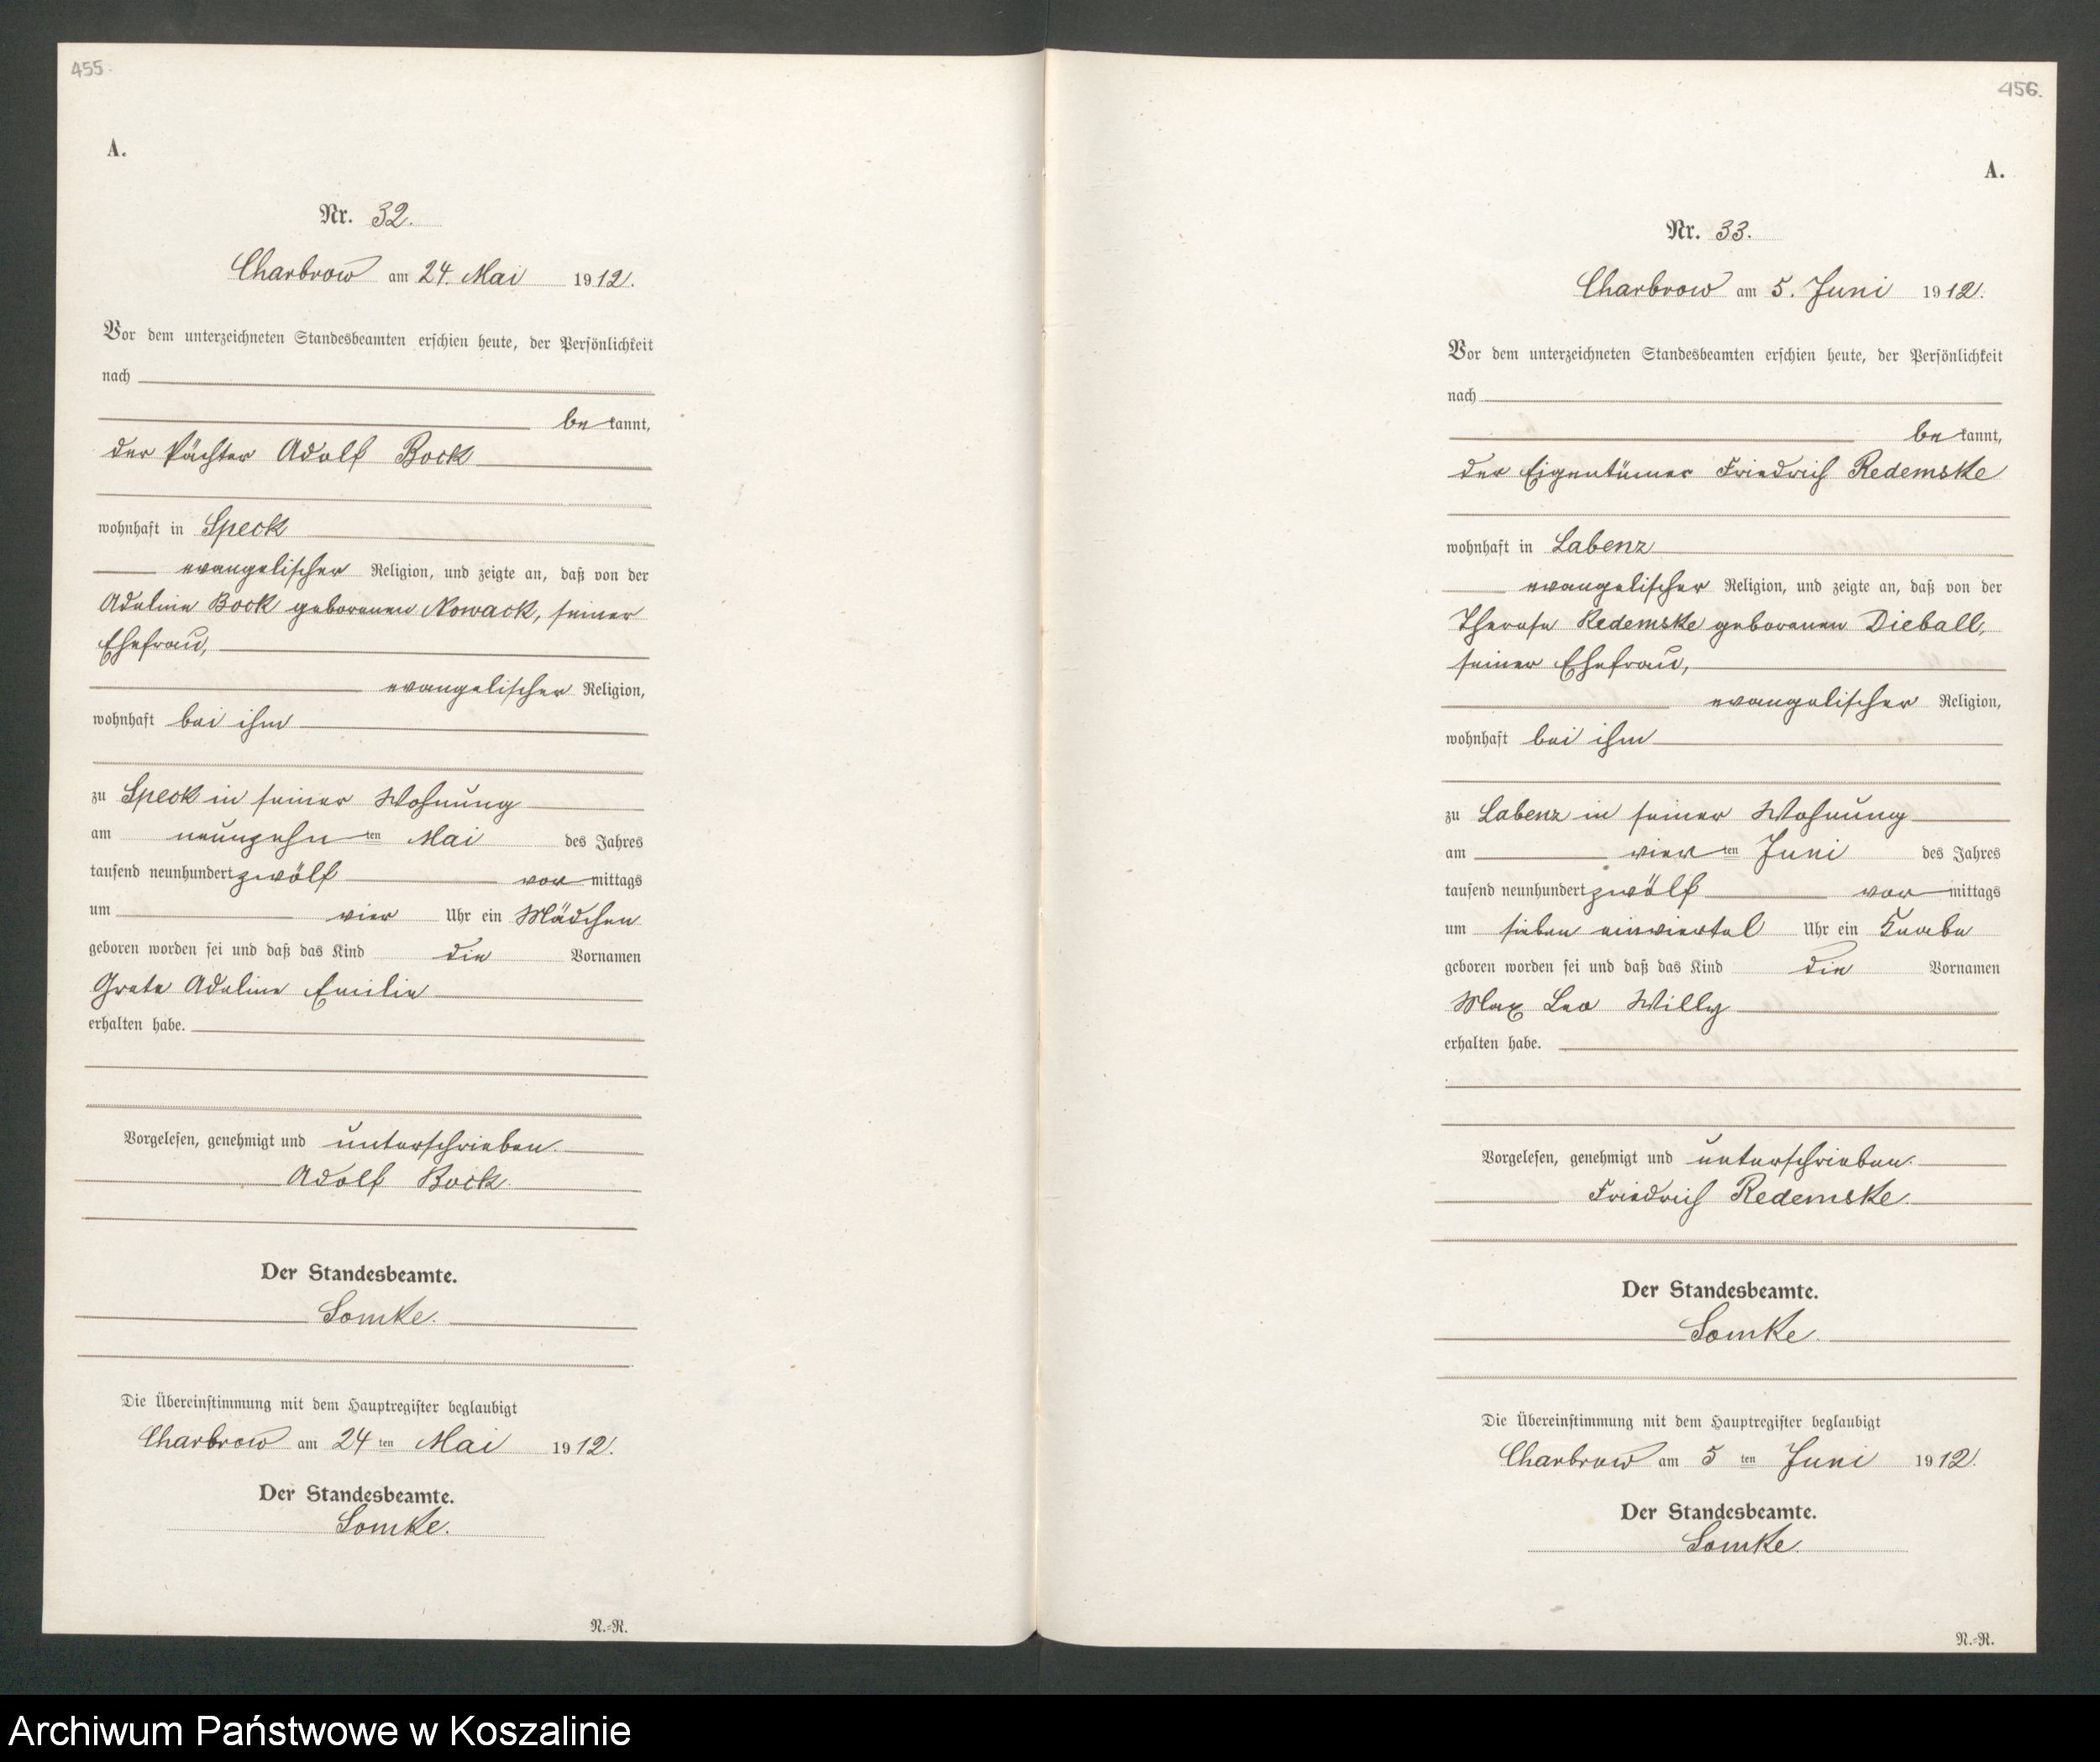 455.
A.
Nr. 32.
Charbrow am 24. Mai 1912.
Vor dem unterzeichneten Standesbeamten erschien heute, der Persönlichkeit
nach
be kannt,
der Pächter Adolf Bock
wohnhaft in Speck
evangelischer Religion, und zeigte an, daß von der
Adeline Bock geborenen Nowack, seiner
Ehefrau,
evangelischer Religion,
wohnhaft bei ihm
zu Speck in seiner Wohnung
am neunzehn ten Mai des Jahres
tausend neunhundert zwölf vor mittags
um vier Uhr ein Mädchen
geboren worden sei und daß das Kind die Vornamen
Grete Adeline Emilie
erhalten habe.
Vorgelesen, genehmigt und unterschrieben.
Adolf Bock.
Der Standesbeamte.
Lomke.
Die Übereinstimmung mit dem Hauptregister beglaubigt
Charbrow am 24 ten Mai 1912.
Der Standesbeamte.
Lomke.
N.-R.
456.
A.
Nr. 33.
Charbrow am 5. Juni 1912.
Vor dem unterzeichneten Standesbeamten erschien heute, der Persönlichkeit
nach
be kannt,
der Eigentümer Friedrich Redemske
wohnhaft in Labenz
evangelischer Religion, und zeigte an, daß von der
Therese Redemske geborenen Dieball,
seiner Ehefrau,
evangelischer Religion,
wohnhaft bei ihm
zu Labenz in seiner Wohnung
am vier ten Juni des Jahres
tausend neunhundert zwölf vor mittags
um sieben einviertel Uhr ein Knabe
geboren worden sei und daß das Kind die Vornamen
Max Leo Willy
erhalten habe.
Vorgelesen, genehmigt und unterschrieben.
Friedrich Redemske.
Der Standesbeamte.
Lomke.
Die Übereinstimmung mit dem Hauptregister beglaubigt
Charbrow am 5 ten Juni 1912.
Der Standesbeamte.
Lomke.
N.-R.
Archiwum Państwowe w Koszalinie